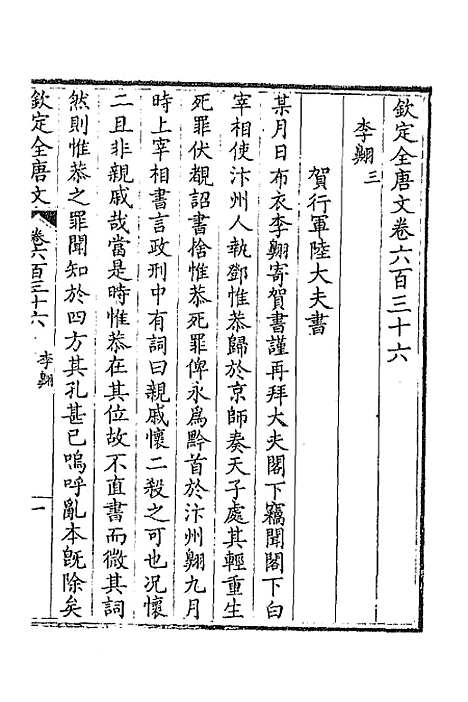 欽定全唐文卷六百三十六
李翺三
賀行軍陸大夫書
某月日布衣李翺寄賀書謹再拜大夫閣下竊聞閣下白
宰相使汴州人執鄧惟恭歸於京師奏天子處其輕重生
死罪伏覩詔書捨惟恭死罪俾永爲黔首於汴州翺九月
時上宰相書言政刑中有詞曰親戚懷二殺之可也况懷
二且非親戚哉當是時惟恭在其位故不直書而微其詞
然則惟恭之罪聞知於四方其孔甚已嗚呼亂本旣除矣
欽定全唐文 卷六百三十六 李翺 一